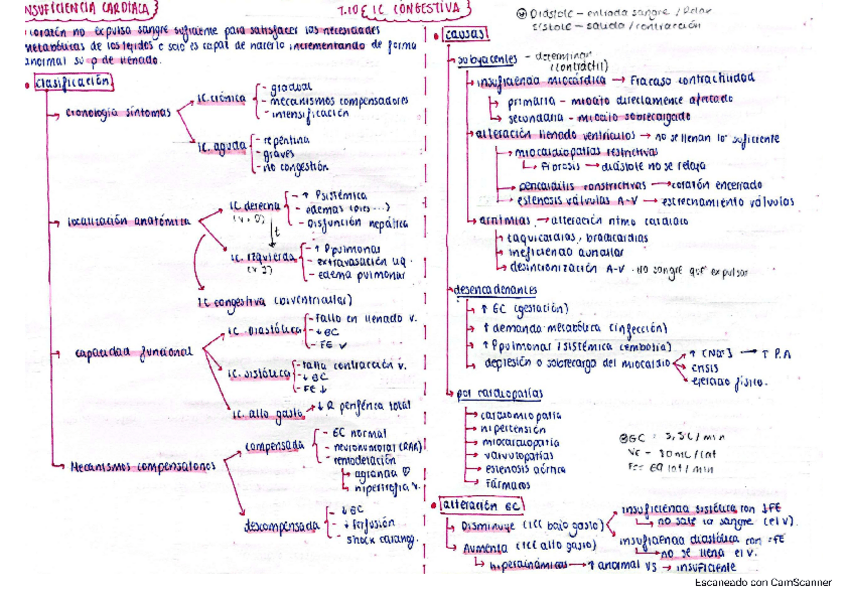 INSUFICIENCIA CARDÍACA
T.10 IC CONGESTIVA
Diástole - entrada sangre / Relax
Sístole - salida / contracción
corazón no expulsa sangre suficiente para satisfacer las necesidades
metabólicas de los tejidos o solo es capaz de hacerlo incrementando de forma
anormal su p de llenado.
Clasificación
cronología síntomas
IC crónica
- gradual
- mecanismos compensadores
- intensificación
IC aguda
- repentina
- graves
- no congestión
localización anatómica
IC derecha
- ↑ Psistémica
- edemas (pies...)
- Disfunción hepática
IC izquierda
- ↑ Ppulmonar
- extravasación líq.
- edema pulmonar
IC congestiva (biventricular)
capacidad funcional
IC Diastólica
- Fallo en llenado v.
- ↓ GC
- FE ✓
IC sistólica
- falla contracción v.
- ↓ GC
- FE ↓
IC alto gasto → ↓ R periférica total
Mecanismos compensatorios
compensada
- GC normal
- neurohumoral (RAA)
- remodelación
agranda ♡
hipertrofia v.
descompensada
- ↓ GC
- ↓ perfusión
- shock cardiog.
causas
subyacentes - determinan
(contráctil)
insuficiencia miocárdica → Fracaso contractilidad
primaria - miocito directamente afectado
secundaria - miocito sobrecargado
alteración llenado ventrículos → no se llenan lo suficiente
miocardiopatías restrictivas
Fibrosis → diástole no se relaja
pericarditis constrictivas → corazón encerrado
estenosis válvulas A-V → estrechamiento válvulas
arritmias → alteración ritmo cardíaco
taquicardias, bradicardias
ineficiencia auricular
desincronización A-V - no sangre que expulsar
desencadenantes
↑ GC (gestación)
↑ demanda metabólica (infección)
↑ Ppulmonar / sistémica (embolia)
depresión o sobrecarga del miocardio
↑ [Na+] → ↑ P.A
crisis
ejercicio físico.
por cardiopatías
cardiomiopatía
hipertensión
miocardiopatía
valvulopatías
estenosis aórtica
Fármacos
GC = 5,5L / min
VE - 80 mL / lat
FC = 60 lat / min
alteración GC
Disminuye (ICC bajo gasto)
insuficiencia sistólica con ↓FE
no sale la sangre (el v).
insuficiencia diastólica con =FE
no se llena el v.
Aumenta (ICC alto gasto)
hiperdinámicos → ↑ anormal VS → insuficiente
Escaneado con CamScanner